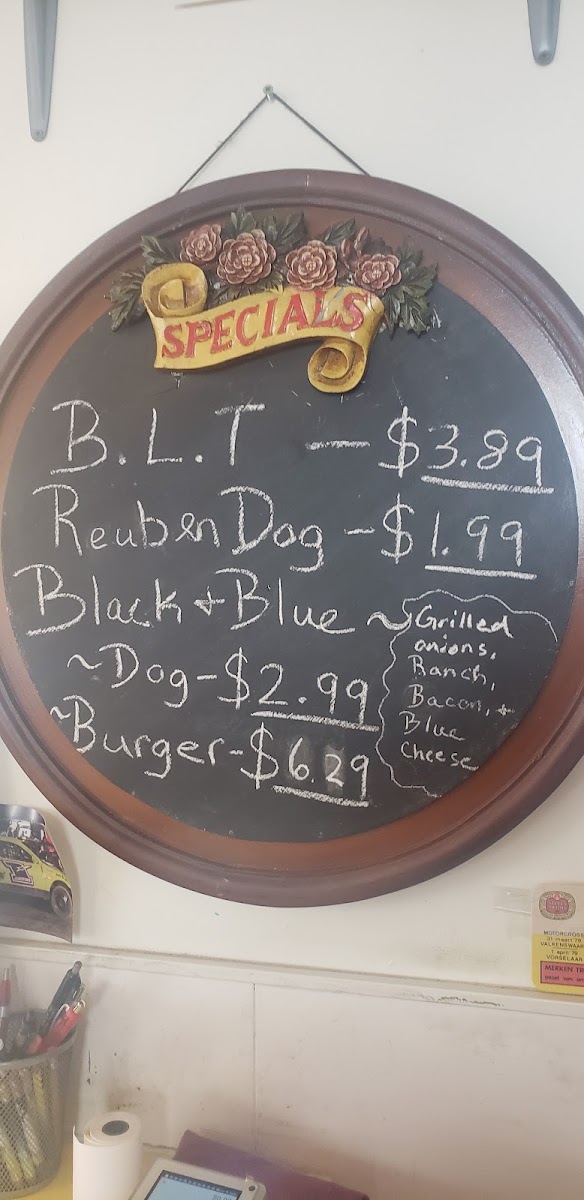 SPECIALS
B.L.T — $3.89
Reuben Dog - $1.99
Black + Blue ~
~Dog - $2.99
~Burger - $6.29
Grilled
onions,
Ranch,
Bacon, +
Blue
Cheese
MOTORCROSS
31 maart '79
VALKENSWAAR
1 april '79
VORSELAAR
MERKEN TR